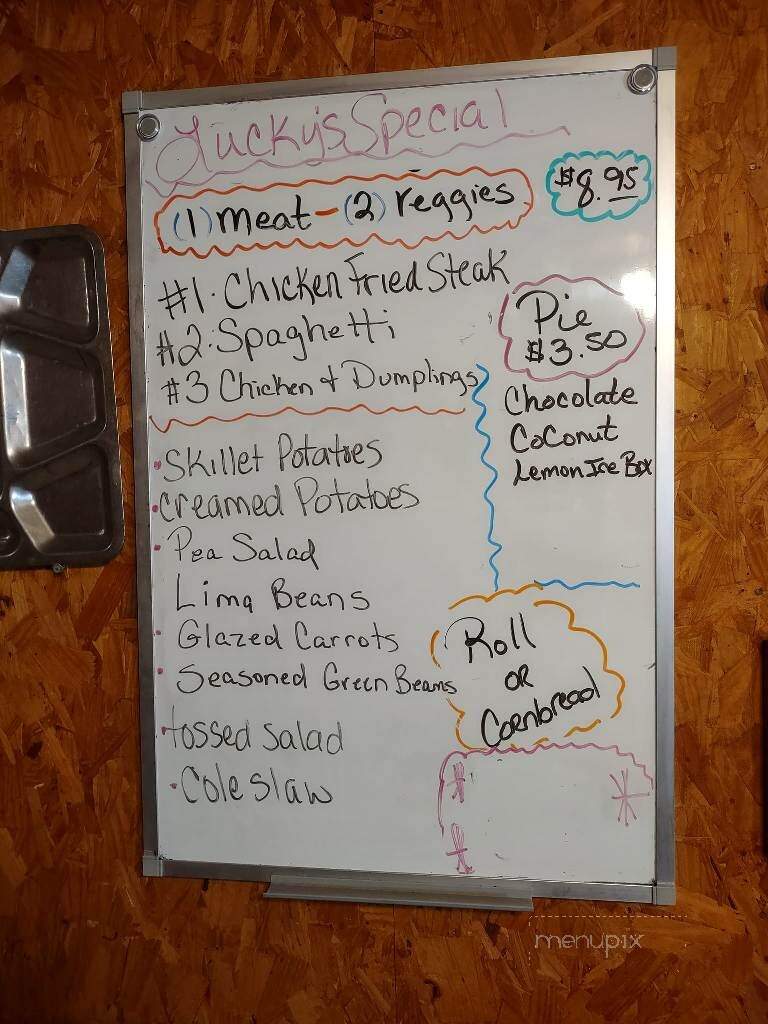 Lucky's Special
(1) meat - (2) veggies
$8.95
#1. Chicken Fried Steak
#2. Spaghetti
#3 Chicken & Dumplings
Pie
$3.50
Chocolate
CoConut
Lemon Ice Box
• Skillet Potatoes
• creamed Potatoes
• Pea Salad
Lima Beans
• Glazed Carrots
• Seasoned Green Beans
• tossed salad
• Cole slaw
Roll
OR
Cornbread
menupix